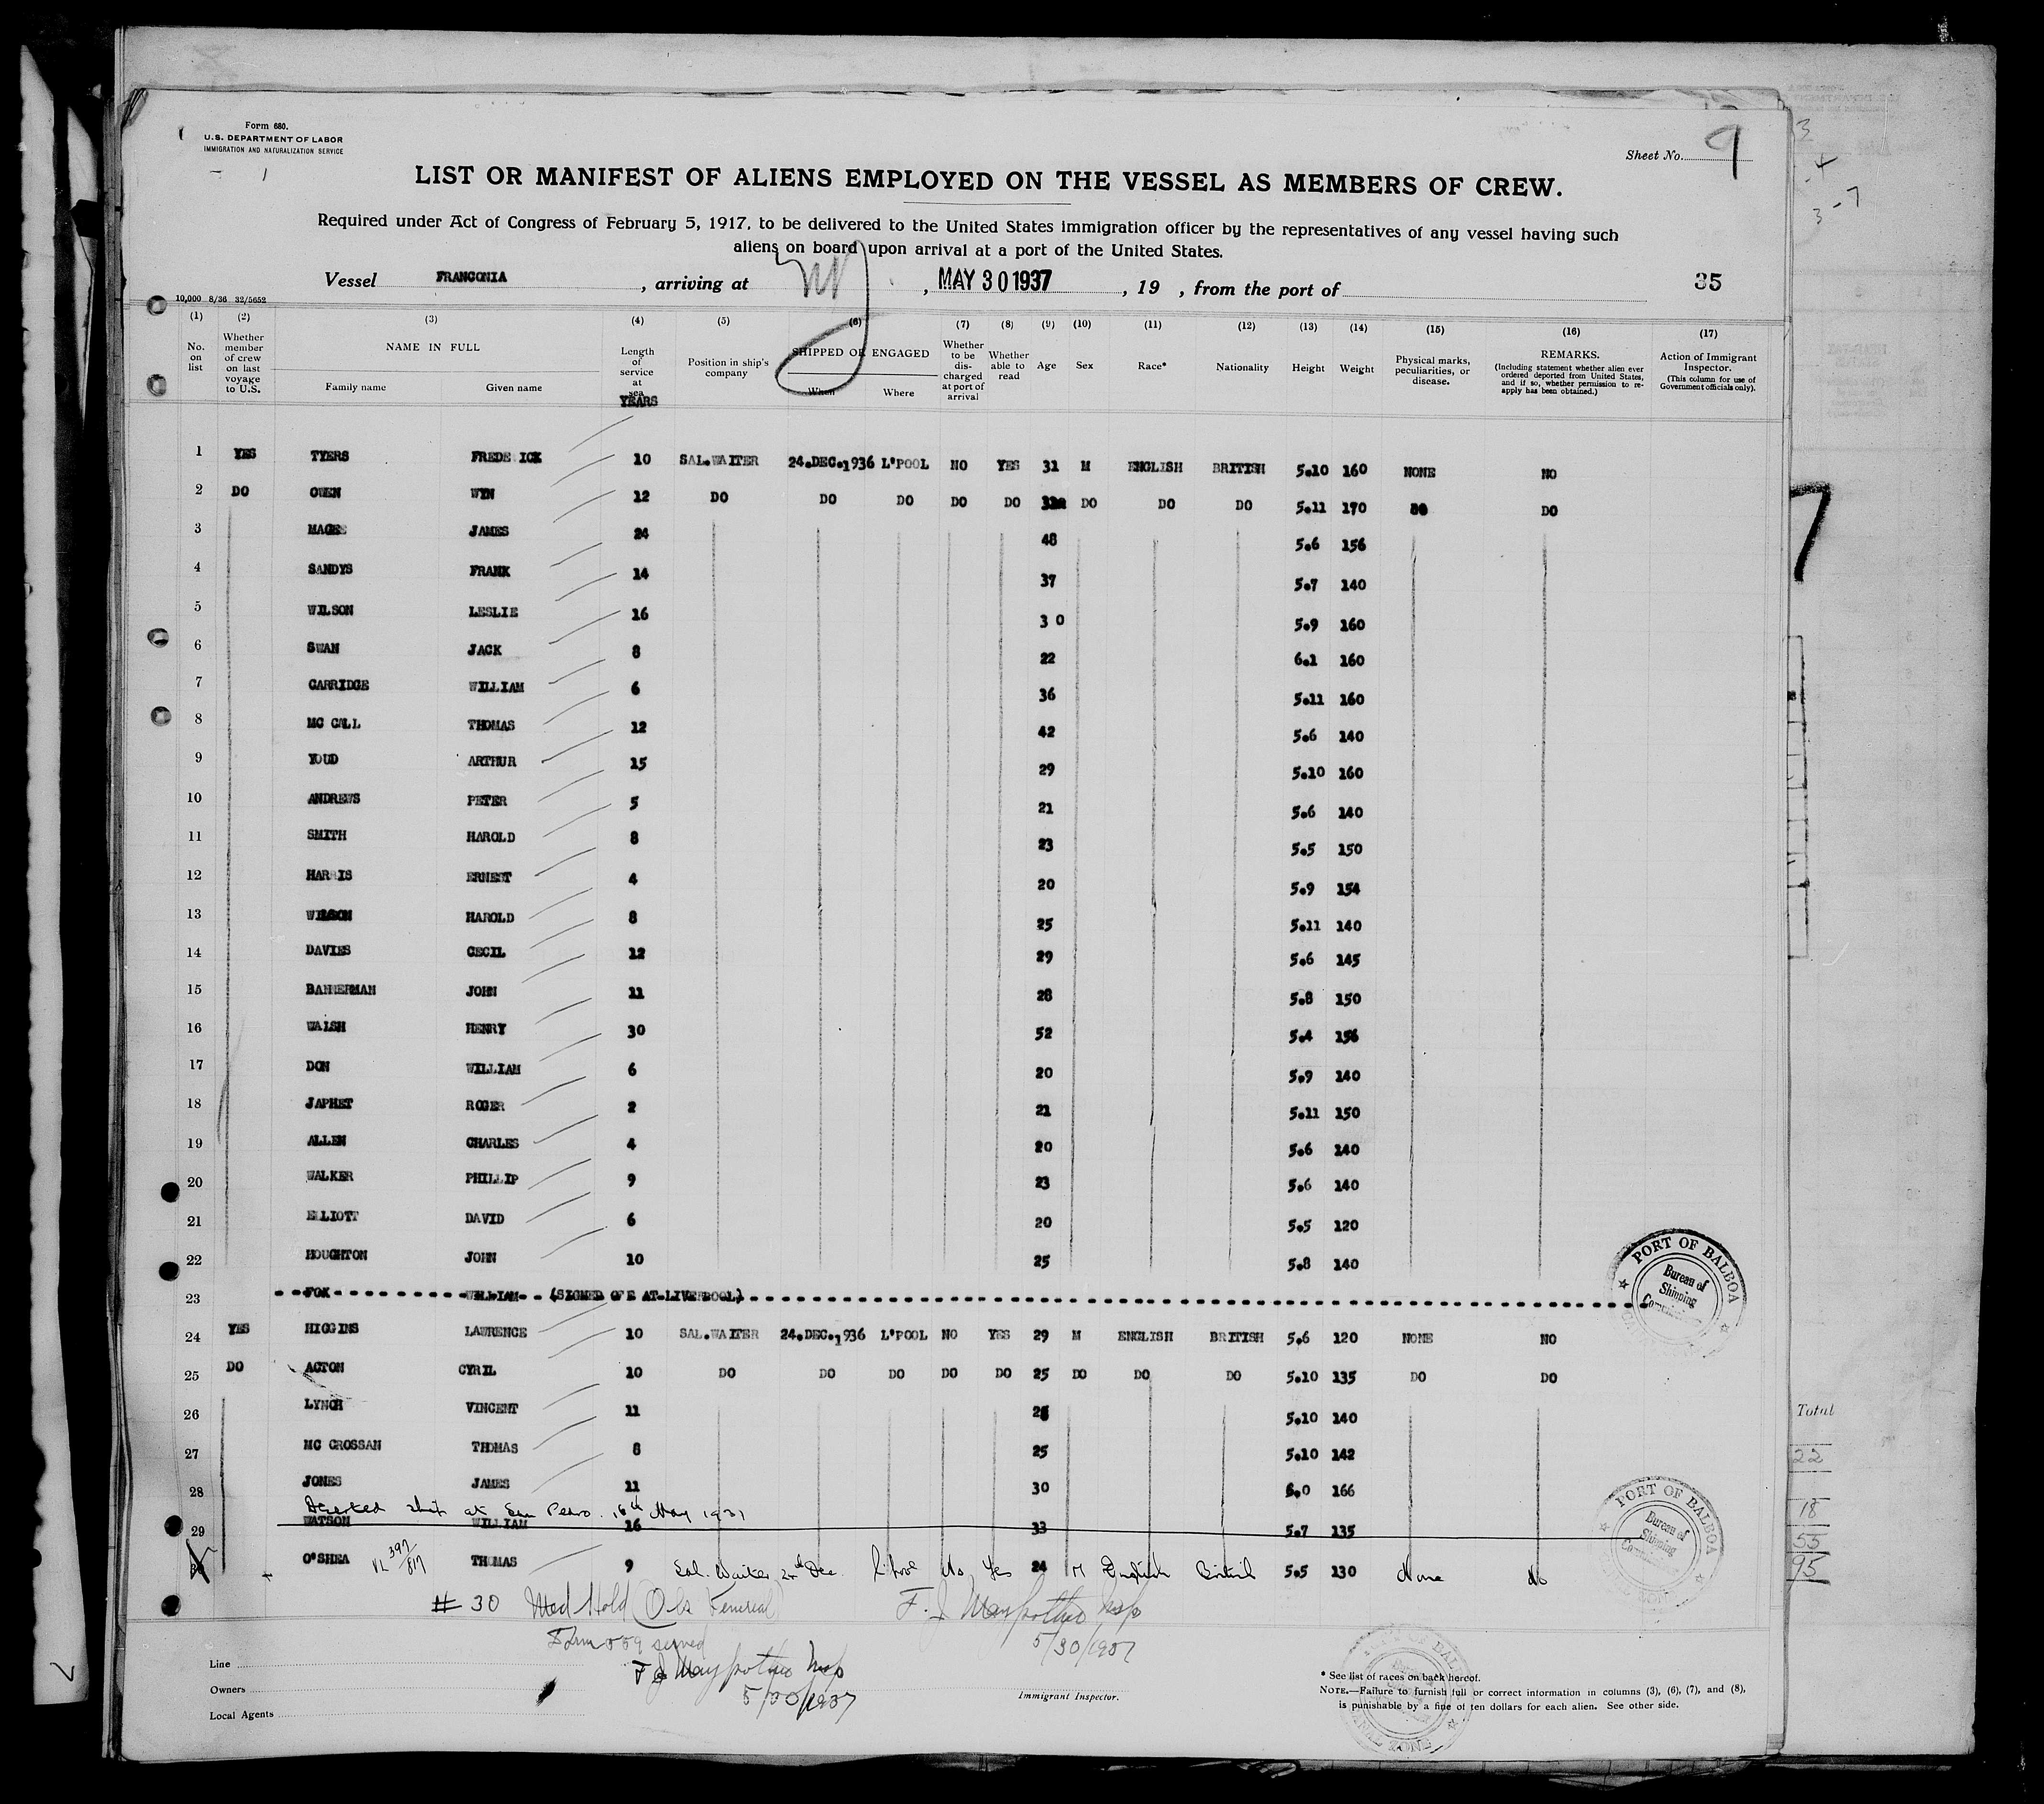 Form 680.
U.S. DEPARTMENT OF LABOR
IMMIGRATION AND NATURALIZATION SERVICE
Sheet No. 9
LIST OR MANIFEST OF ALIENS EMPLOYED ON THE VESSEL AS MEMBERS OF CREW.
Required under Act of Congress of February 5, 1917, to be delivered to the United States immigration officer by the representatives of any vessel having such
aliens on board upon arrival at a port of the United States.
Vessel FRANCONIA , arriving at NY , MAY 30 1937 , 19 , from the port of 35
10,000 8/36 32/5652
(1) (2) (3) (4) (5) (6) (7) (8) (9) (10) (11) (12) (13) (14) (15) (16) (17)
No. on list
Whether member of crew on last voyage to U.S.
NAME IN FULL
Family name Given name
Length of service at sea
YEARS
Position in ship's company
SHIPPED OR ENGAGED
When Where
Whether to be discharged at port of arrival
Whether able to read
Age
Sex
Race*
Nationality
Height
Weight
Physical marks, peculiarities, or disease.
REMARKS.
(Including statement whether alien ever ordered deported from United States, and if so, whether permission to re-apply has been obtained.)
Action of Immigrant Inspector.
(This column for use of Government officials only).
1 YES TYERS FREDE ICK 10 SAL.WAITER 24.DEC.1936 L'POOL NO YES 31 M ENGLISH BRITISH 5.10 160 NONE NO
2 DO OWEN WYN 12 DO DO DO DO DO DO DO DO 5.11 170 DO
3 MAGEE JAMES 24 48 5.6 156
4 SANDYS FRANK 14 37 5.7 140
5 WILSON LESLIE 16 3 0 5.9 160
6 SWAN JACK 8 22 6.1 160
7 GARRIDGE WILLIAM 6 36 5.11 160
8 MC CALL THOMAS 12 42 5.6 140
9 YOUD ARTHUR 15 29 5.10 160
10 ANDREWS PETER 5 21 5.6 140
11 SMITH HAROLD 8 23 5.5 150
12 HARRIS ERNEST 4 20 5.9 154
13 WILSON HAROLD 8 25 5.11 140
14 DAVIES CECIL 12 29 5.6 145
15 BANNERMAN JOHN 11 28 5.8 150
16 WALSH HENRY 30 52 5.4 156
17 DON WILLIAM 6 20 5.9 140
18 JAPHET ROGER 2 21 5.11 150
19 ALLEN CHARLES 4 20 5.6 140
20 WALKER PHILLIP 9 23 5.6 140
21 ELLIOTT DAVID 6 20 5.5 120
22 HOUGHTON JOHN 10 25 5.8 140
23 FOX WILLIAM (SIGNED OFF AT LIVERPOOL)
24 YES HIGGINS LAWRENCE 10 SAL.WAITER 24.DEC.1936 L'POOL NO YES 29 M ENGLISH BRITISH 5.6 120 NONE NO
25 DO ACTON CYRIL 10 DO DO DO DO DO 25 DO DO DO 5.10 135 DO DO
26 LYNCH VINCENT 11 5.10 140
27 MC CROSSAN THOMAS 8 25 5.10 142
28 JONES JAMES 11 30 6.0 166
Deserted ship at San Pedro. 16th May 1937
29 WATSON WILLIAM 16 33 5.7 135
30 O'SHEA VL 397/817 THOMAS 9 Sal. Waiter 24th Dec. L'pool No Yes 24 M English British 5.5 130 None No
# 30 Med Hold (Obs Venereal) F. J. Insp
5/30/1937
Form 559 served
F J Insp
5/30/1937
Line
Owners
Local Agents
Immigrant Inspector.
* See list of races on back hereof.
NOTE.—Failure to furnish full or correct information in columns (3), (6), (7), and (8),
is punishable by a fine of ten dollars for each alien. See other side.
PORT OF BALBOA
Bureau of
Shipping
PORT OF BALBOA
Bureau of
Shipping
CANAL ZONE
3
4
3 - 7
7
Total
22
18
55
95